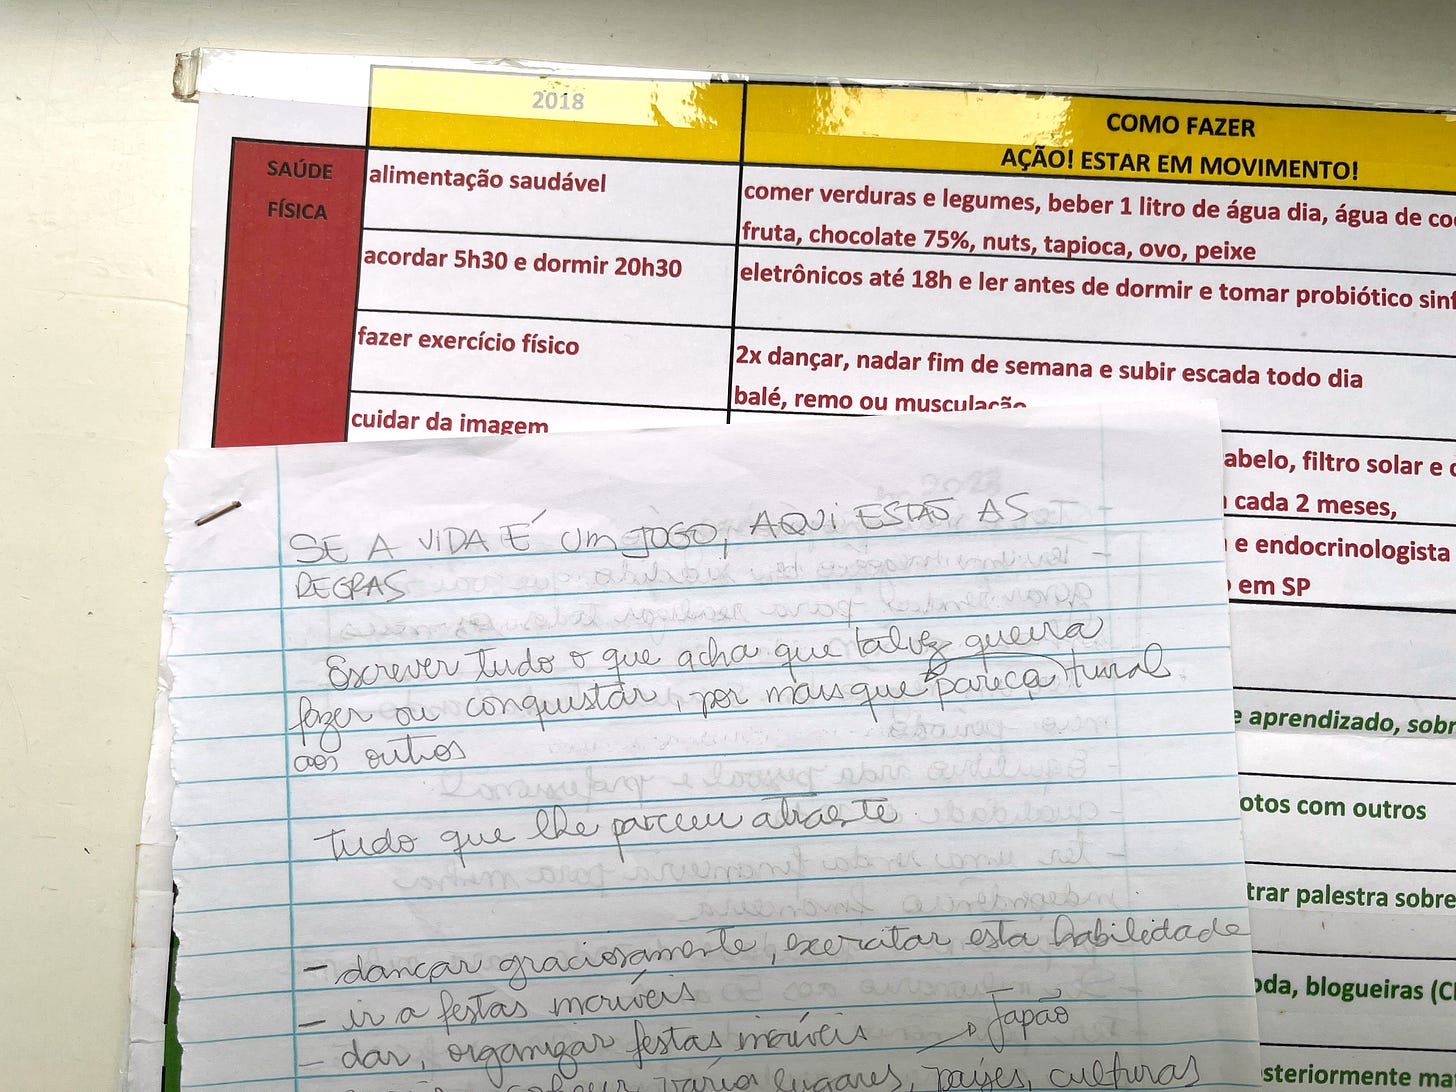 2018
COMO FAZER
AÇÃO! ESTAR EM MOVIMENTO!
SAÚDE
FÍSICA
alimentação saudável
comer verduras e legumes, beber 1 litro de água dia, água de co
fruta, chocolate 75%, nuts, tapioca, ovo, peixe
acordar 5h30 e dormir 20h30
eletrônicos até 18h e ler antes de dormir e tomar probiótico sinf
fazer exercício físico
2x dançar, nadar fim de semana e subir escada todo dia
balé, remo ou musculação
cuidar da imagem
abelo, filtro solar e
cada 2 meses,
e endocrinologista
em SP
e aprendizado, sobr
otos com outros
trar palestra sobre
oda, blogueiras (C
steriormente ma
SE A VIDA É UM JOGO, AQUI ESTÃO AS
REGRAS
Escrever tudo o que acha que talvez queira
fazer ou conquistar, por mais que pareça
aos outros
tudo que lhe pareceu atraente
- dançar graciosamente, exercitar esta habilidade
- ir a festas incríveis
- dar, organizar festas incríveis
Japão
vários lugares, países, culturas